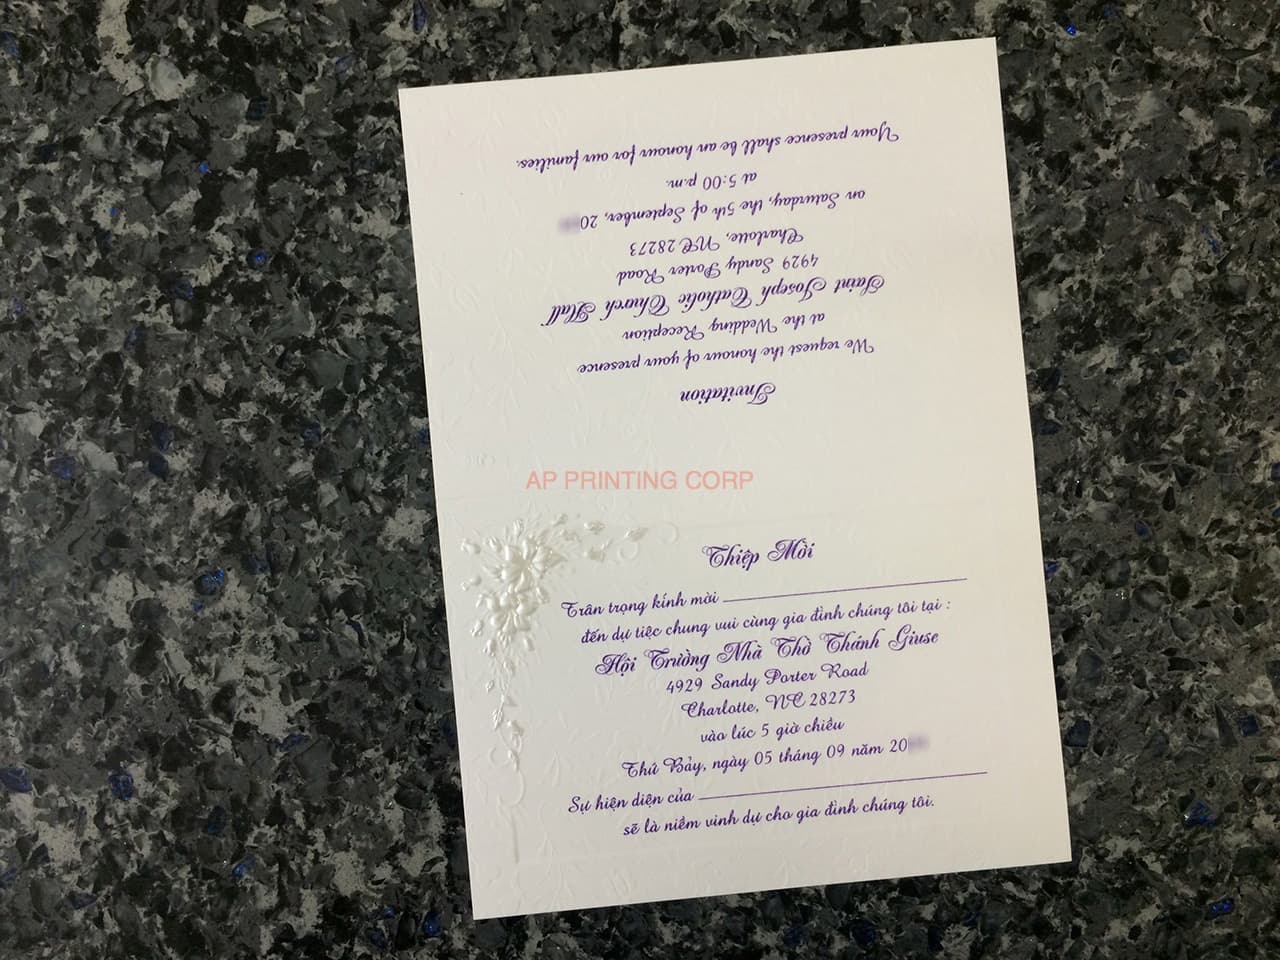 Your presence shall be an honour for our families.
at 5:00 p.m.
on Saturday, the 5th of September, 20
Charlotte, NC 28273
4929 Sandy Porter Road
Saint Joseph Catholic Church Hall
at the Wedding Reception
We request the honour of your presence
Invitation
AP PRINTING CORP
Thiệp Mời
Trân trọng kính mời
đến dự tiệc chung vui cùng gia đình chúng tôi tại :
Hội Trường Nhà Thờ Thánh Giuse
4929 Sandy Porter Road
Charlotte, NC 28273
vào lúc 5 giờ chiều
Thứ Bảy, ngày 05 tháng 09 năm 20
Sự hiện diện của
sẽ là niềm vinh dự cho gia đình chúng tôi.